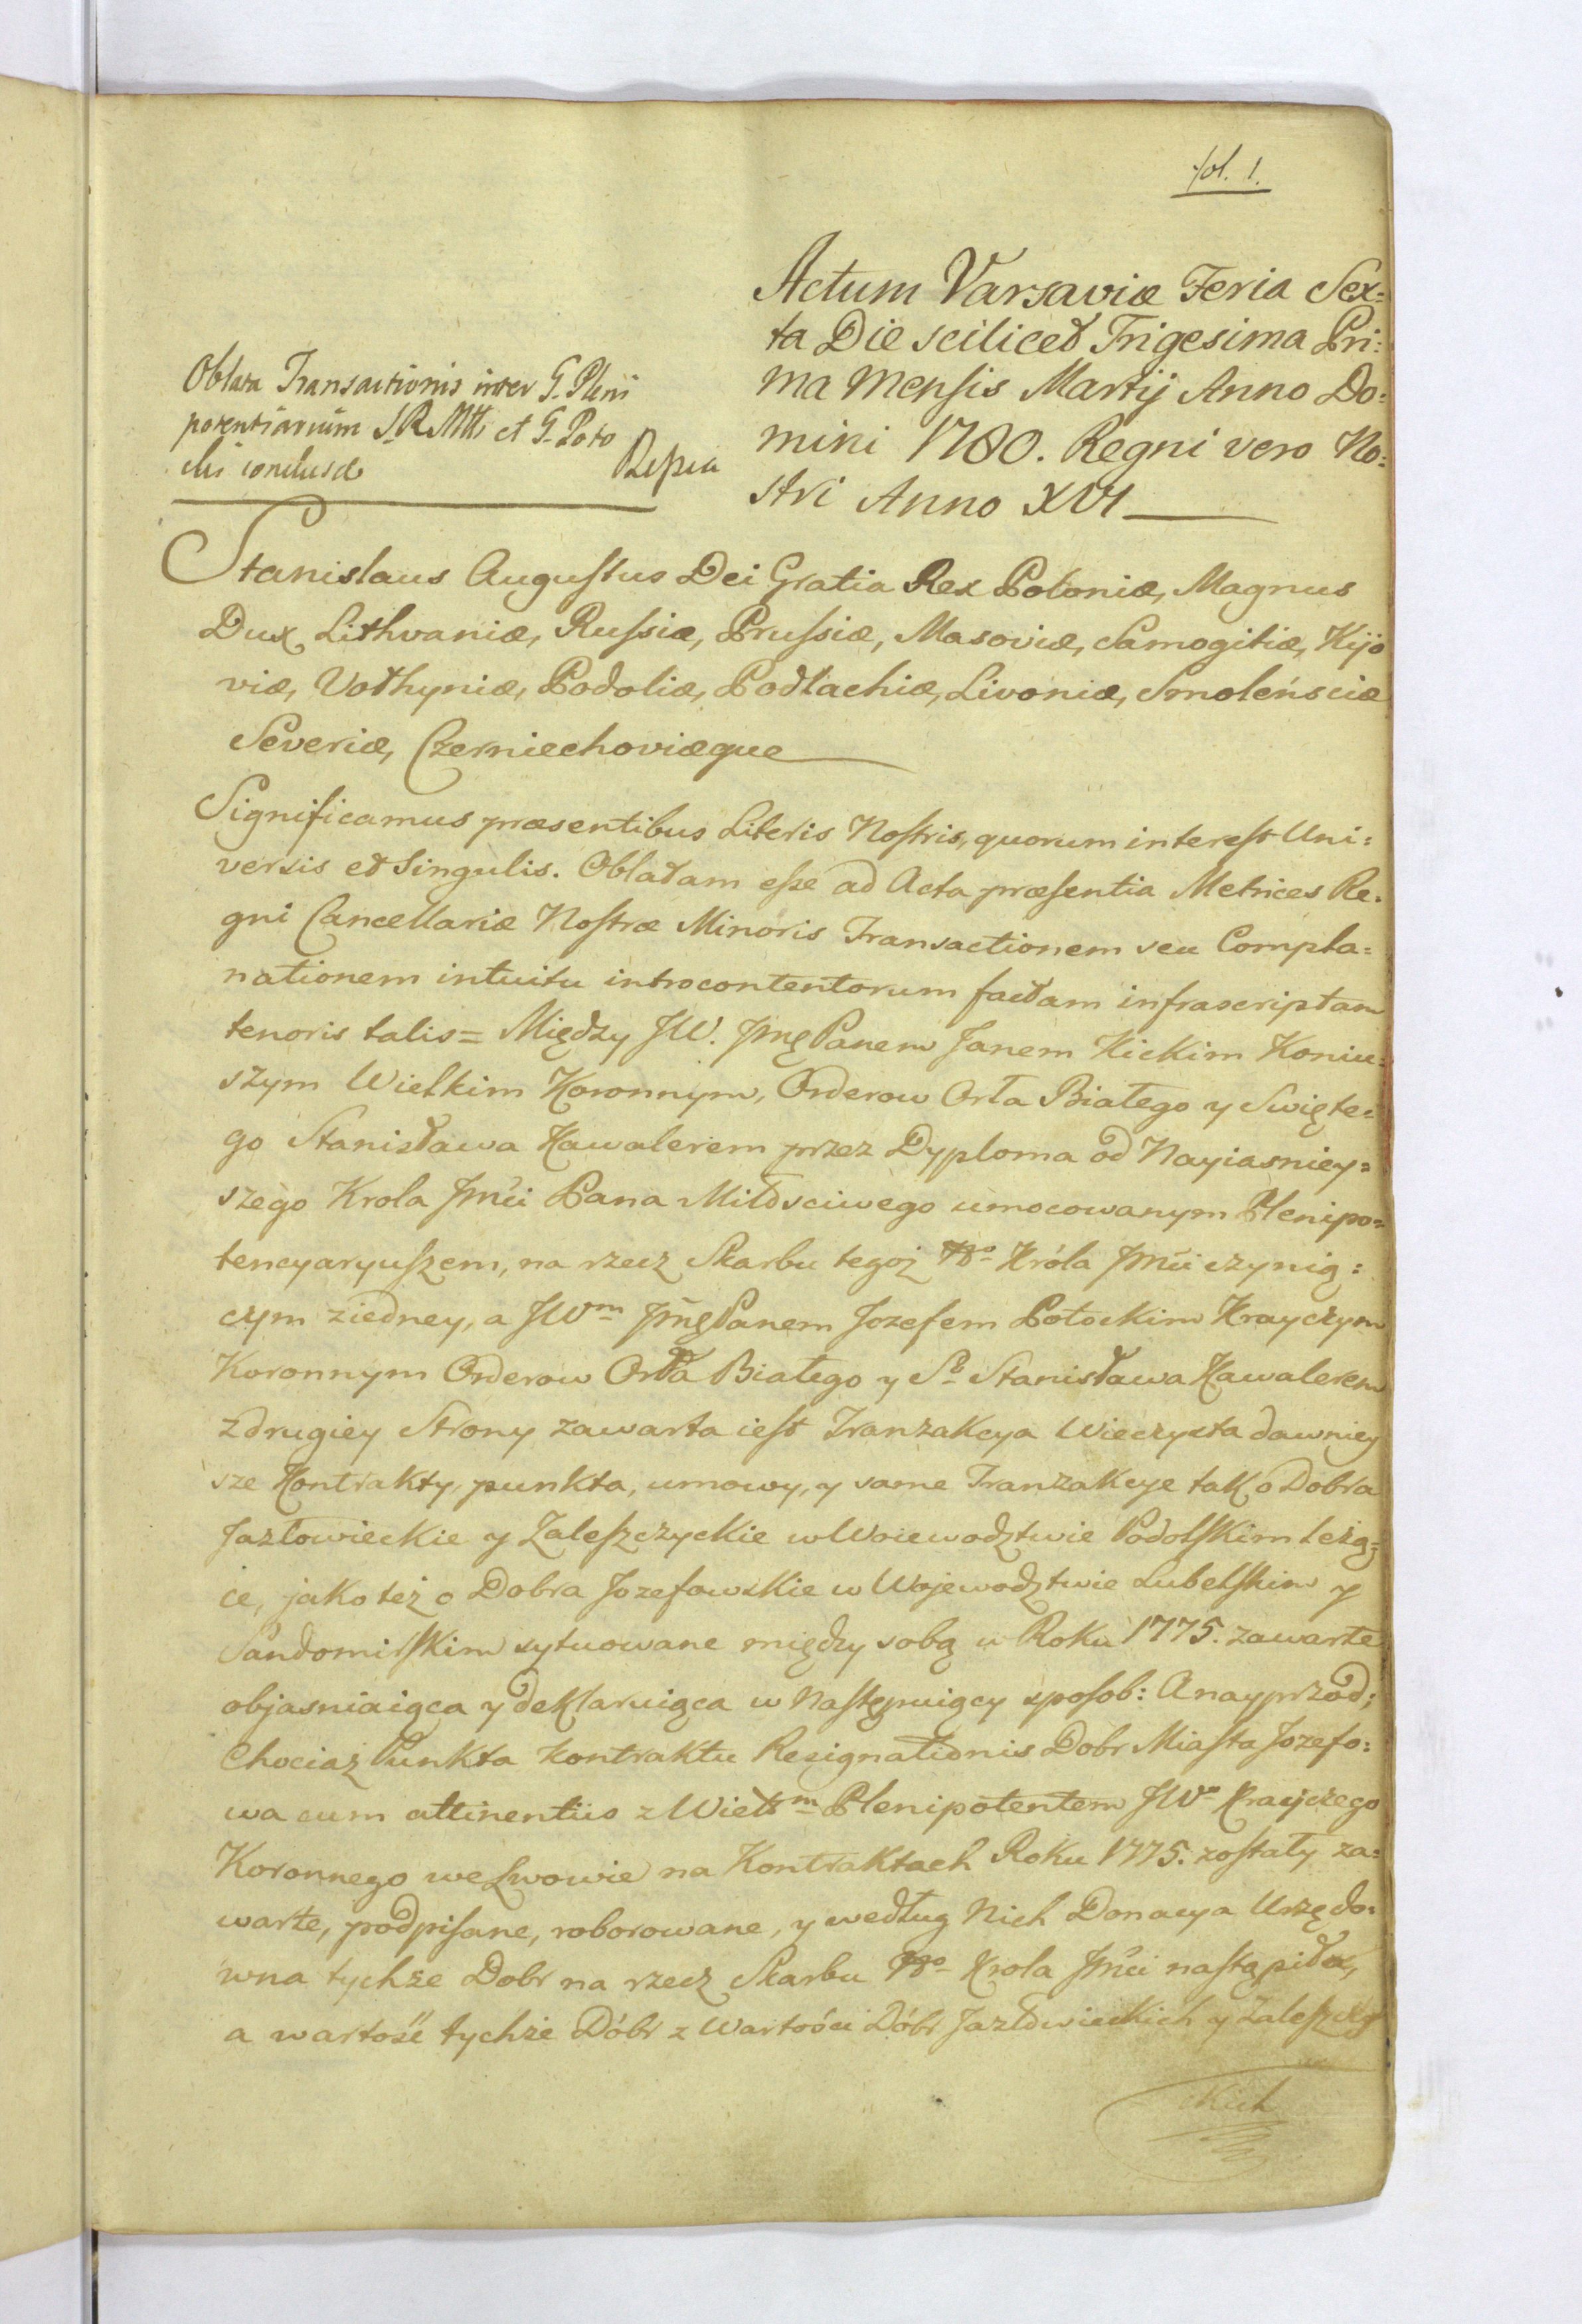 fol. 1.
Actum Varsaviæ Feria Sex=
ta Die scilicet Trigesima Pri:
ma Mensis Martij Anno Do:
mini 1780. Regni vero No:
stri Anno XVI
Oblata Transactionis inter G. Pleni
potentiarium S. R. Mtti et G. Poto
cki conclusa
Stanislaus Augustus Dei Gratia Rex Poloniæ, Magnus
Dux Lithvaniæ, Russiæ, Prussiæ, Masoviæ, Samogitiæ, Kijo
viæ, Volhyniæ, Podoliæ, Podlachiæ, Livoniæ, Smolensciæ
Severiæ, Czerniechoviæque
Significamus præsentibus Literis Nostris, quorum interest Uni:
versis et Singulis. Oblatam esse ad Acta præsentia Metrices Re.
gni Cancellariæ Nostræ Minoris Transactionem seu Compla=
nationem intuitu introcontentorum factam infrascriptam
tenoris talis= Między JW. Jmę Panem Janem Kickim Koniu=
szym Wielkim Koronnym, Orderow Orła Białego y Swięte=
go Stanisława Kawalerem przez Dyploma od Nayiasniey=
szego Krola Jmći Pana Miłosciwego umocowanym Plenipo=
tencyaryuszem, na rzecz Skarbu tegoż Króla Jmći czynią:
cym ziedney, a JWm Jmę Panem Jozefem Potockim Krayczym
Koronnym Orderow Orła Białego y So Stanisława Kawalerem
zdrugiey Strony zawarta iest Tranzakcya Wieczysta dawniey
sze Kontrakty, punkta, umowy, y same Tranzakcye tak o Dobra
Jazłowieckie y Zaleszczyckie w Woiewodztwie Podolskim leżą=
ce, jako też o Dobra Jozefowskie w Wojewodztwie Lubelskim y
Sandomirskim sytuowane między sobą w Roku 1775. zawarte
objasniaiąca y deklaruiąca w Następuiący sposob: A nayprzod;
Chociaz Punkta Kontraktu Resignationis Dobr Miasta Jozefo:
wa cum attinentiis z Wielm Plenipotentem JWo Krayczego
Koronnego we Lwowie na Kontraktach Roku 1775. zostały za=
warte, podpisane, roborowane, y według Nich Donacya Urzędo=
wna tychże Dobr na rzecz Skarbu Krola Jmći nastąpiła,
a wartość tychże Dóbr z Wartości Dóbr Jazłowieckich y Zaleszczy